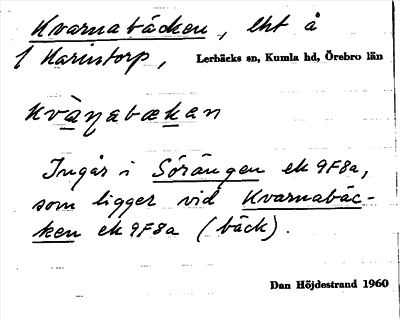 Kvarnabäcken, lht å
f Karintorp, Lerbäcks sn, Kumla hd, Örebro län
kvàɳabækan
Ingår i Sörängen ek 9F8a,
som ligger vid Kvarnabäc-
ken ek 9F8a (bäck).
Dan Höjdestrand 1960